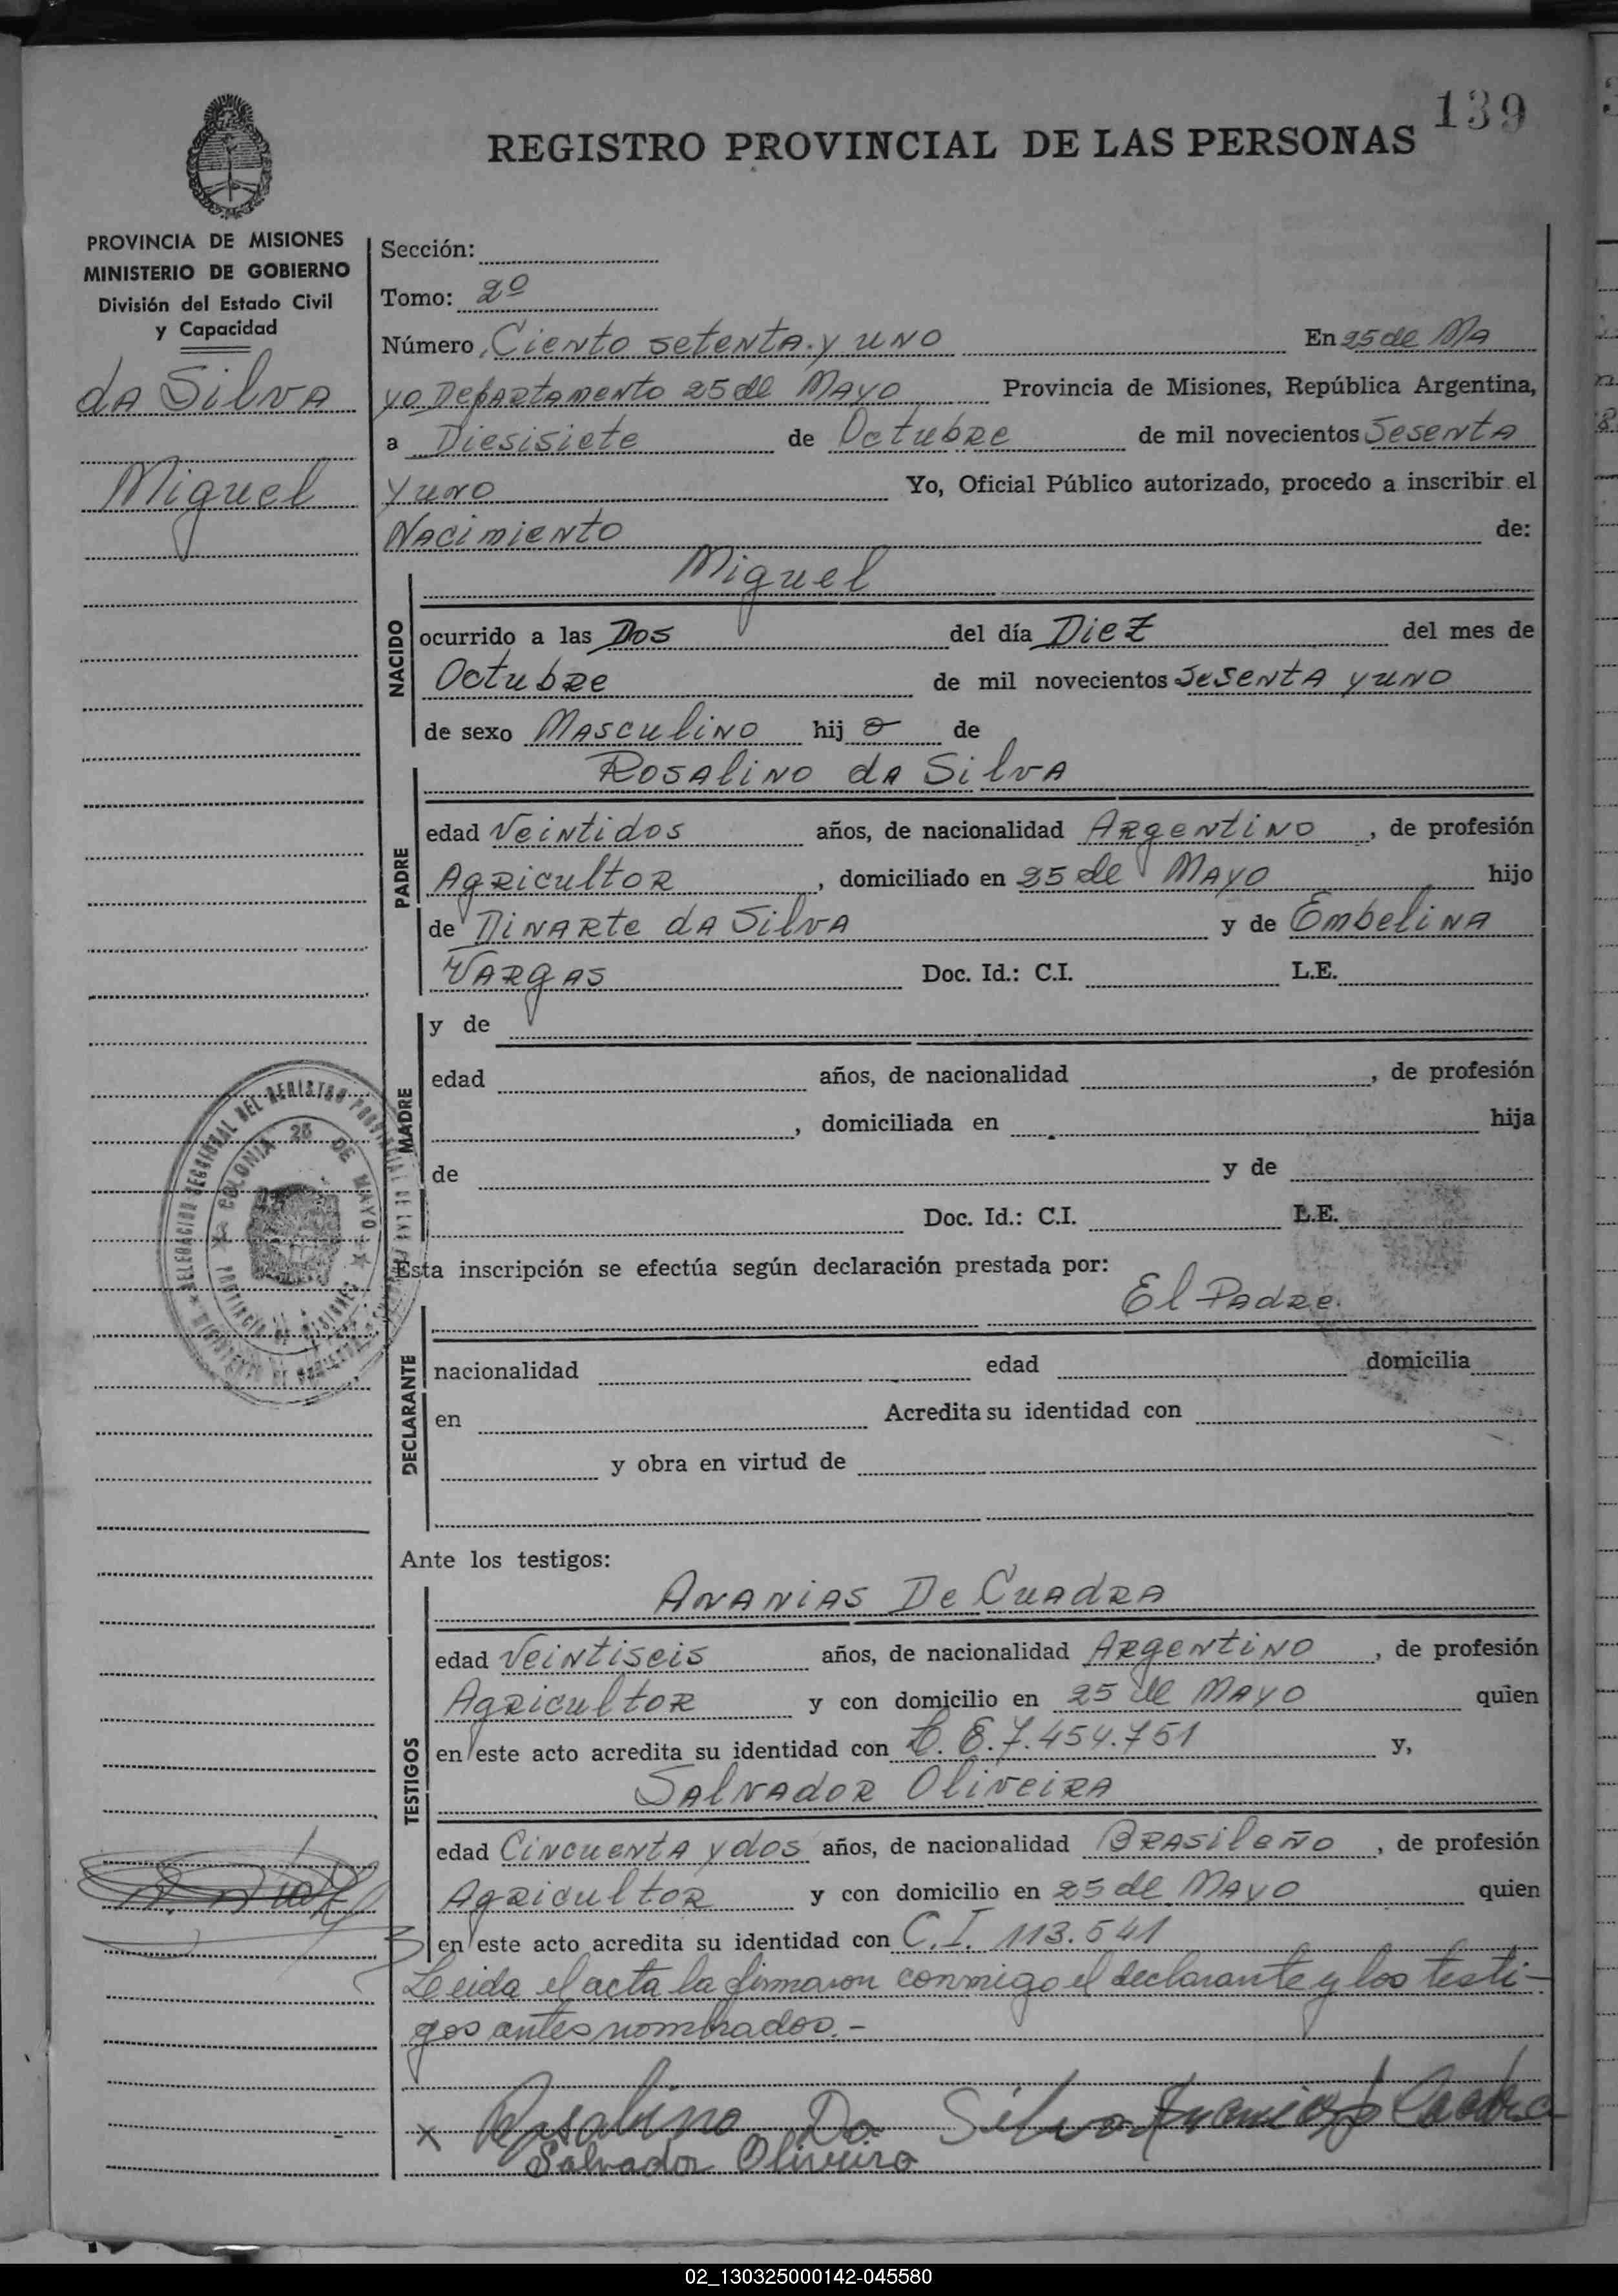 139
REGISTRO PROVINCIAL DE LAS PERSONAS
PROVINCIA DE MISIONES
MINISTERIO DE GOBIERNO
División del Estado Civil
y Capacidad
da Silva
Miguel
Sección:
Tomo: 2º
Número Ciento setenta y uno En 25 de Ma
yo Departamento 25 de Mayo Provincia de Misiones, República Argentina,
a Diesisiete de Octubre de mil novecientos Sesenta
y uno Yo, Oficial Público autorizado, procedo a inscribir el
Nacimiento de:
Miguel
NACIDO
ocurrido a las Dos del día Diez del mes de
Octubre de mil novecientos Sesenta y uno
de sexo Masculino hijo de
Rosalino da Silva
PADRE
edad Veintidos años, de nacionalidad Argentino, de profesión
Agricultor, domiciliado en 25 de Mayo hijo
de Dinarte da Silva y de Embelina
Vargas Doc. Id.: C.I. L.E.
MADRE
y de
edad años, de nacionalidad , de profesión
, domiciliada en hija
de y de
Doc. Id.: C.I. L.E.
DELEGACION SECCIONAL DEL REGISTRO PROVINCIAL DE LAS PERSONAS
COLONIA 25 DE MAYO
PROVINCIA DE MISIONES
Esta inscripción se efectúa según declaración prestada por:
El Padre.
DECLARANTE
nacionalidad edad domicilia
en Acredita su identidad con
y obra en virtud de
Ante los testigos:
Ananias De Cuadra
TESTIGOS
edad Veintiseis años, de nacionalidad Argentino, de profesión
Agricultor y con domicilio en 25 de Mayo quien
en este acto acredita su identidad con L.E. 7.454.751 y,
Salvador Oliveira
edad Cincuenta y dos años, de nacionalidad Brasileño, de profesión
Agricultor y con domicilio en 25 de Mayo quien
en este acto acredita su identidad con C.I. 113.541
Leida el acta la firmaron conmigo el declarante y los testi-
gos antes nombrados.-
x Rosalino Da Silva Ananias d Cuadra
Salvador Oliveira
02_130325000142-045580